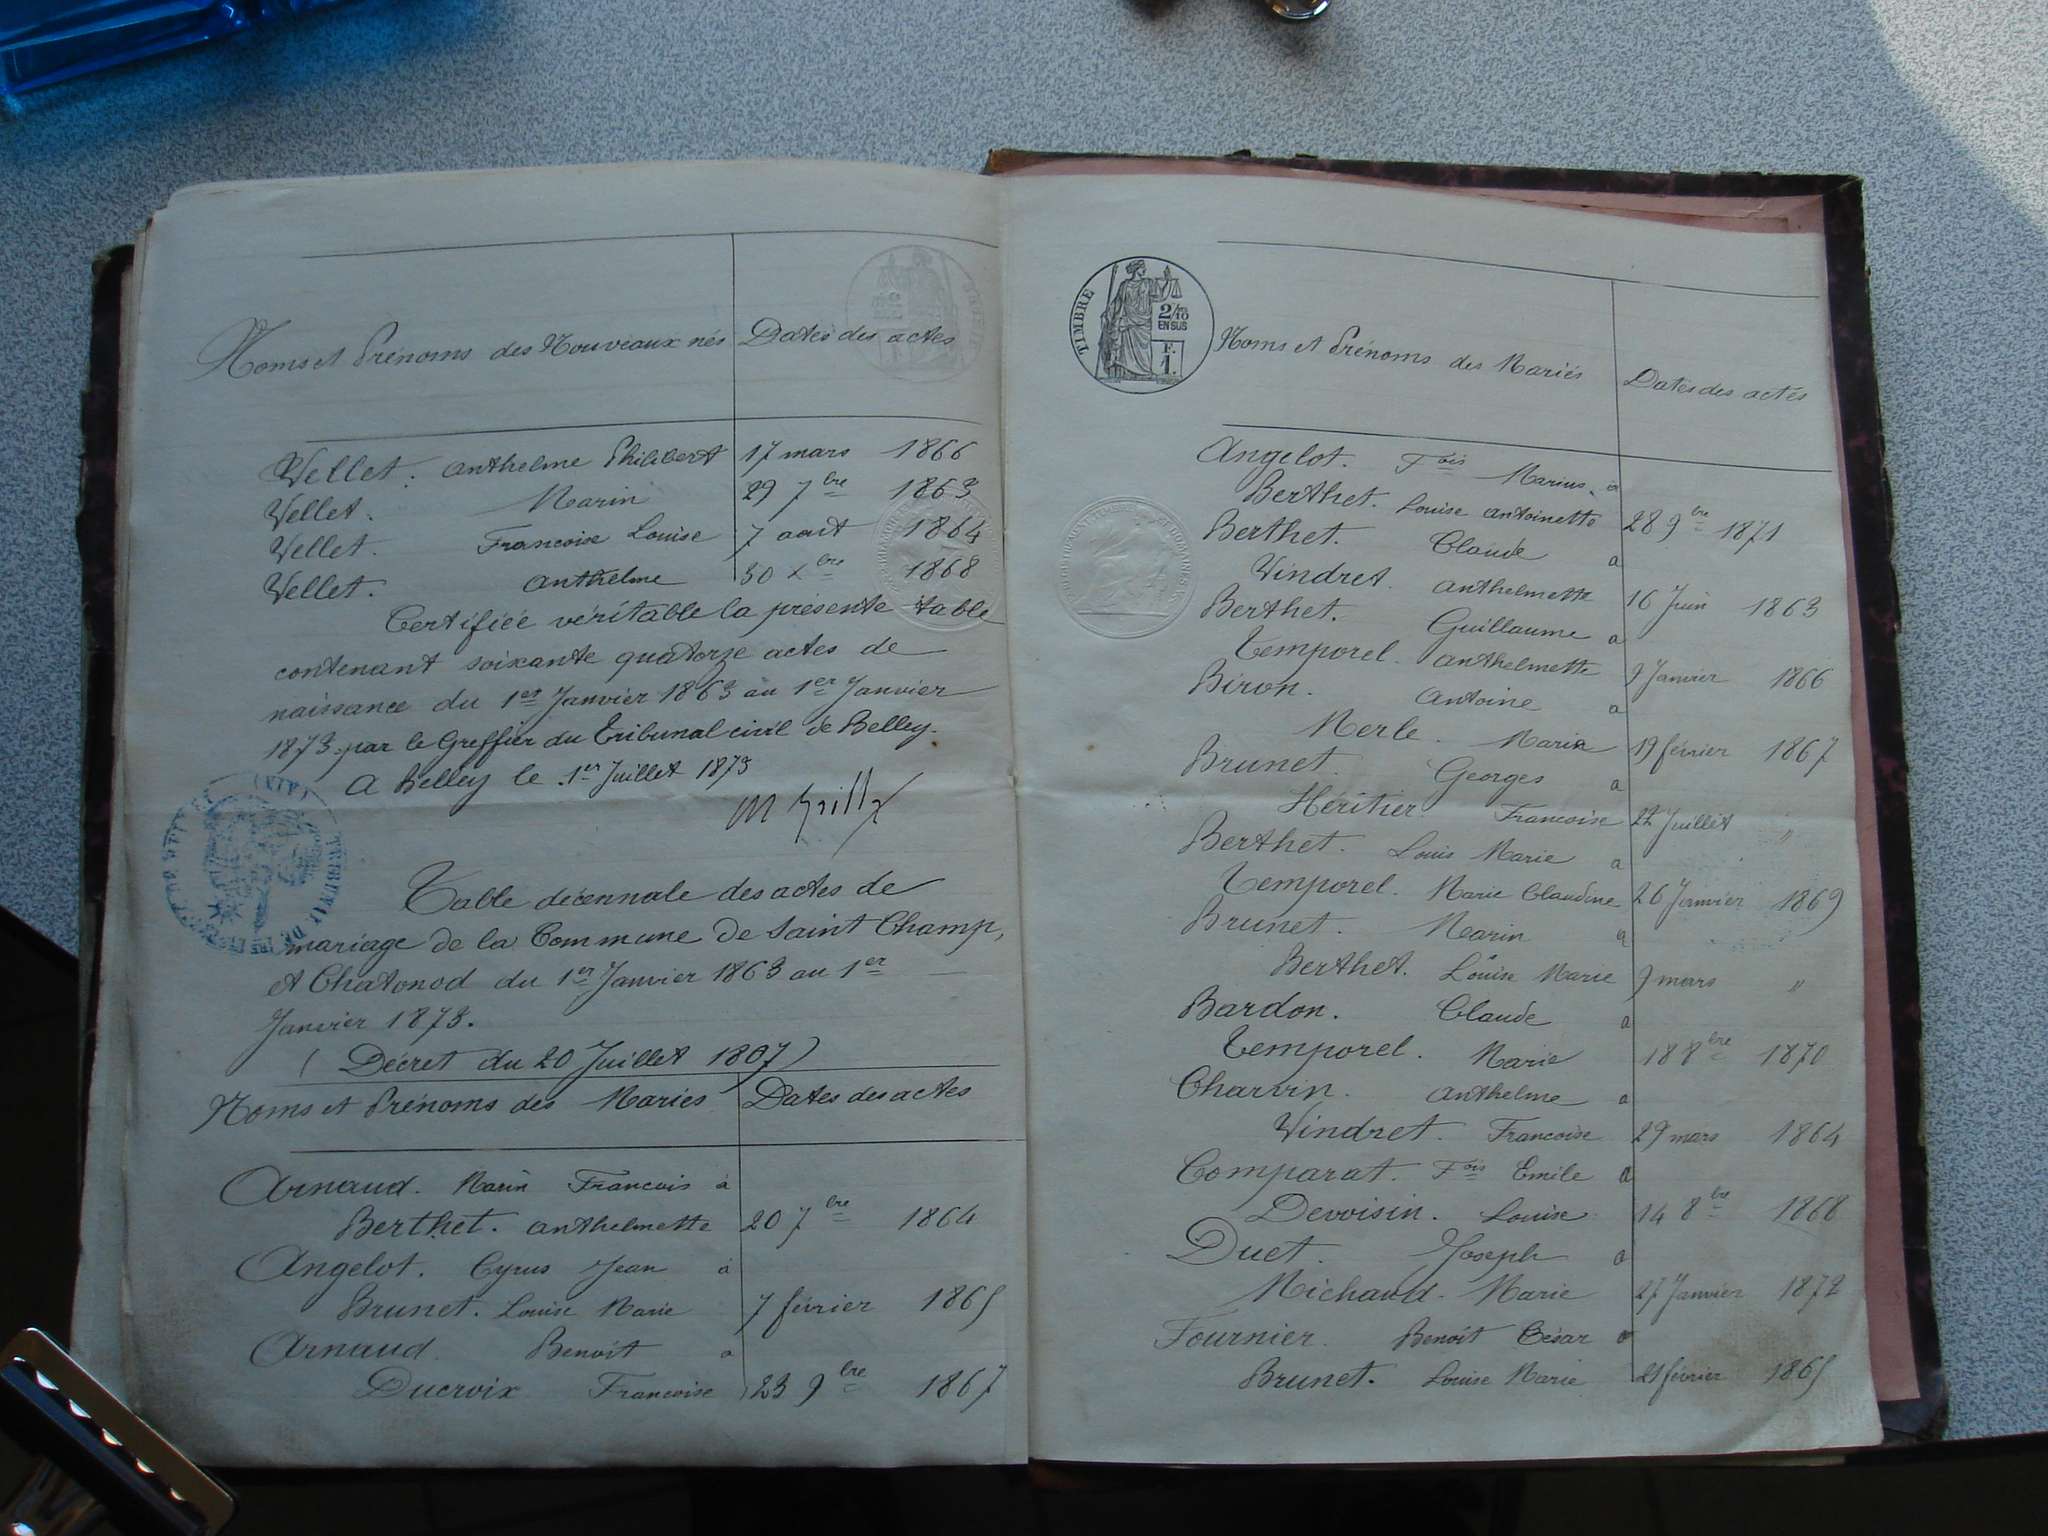 Noms et Prénoms des Nouveaux nés Dates des actes
Vellet. anthelme Philibert 17 mars 1866
Vellet. Marin 29 7bre 1863
Vellet. Francoise Louise 7 aout 1864
Vellet. anthelme 30 xbre 1868
Certifiée véritable la présente table
contenant soixante quatorze actes de
naissance du 1er Janvier 1863 au 1er Janvier
1873 par le Greffier du Tribunal civil de Belley.
A Belley le 1er Juillet 1873
Table décennale des actes de
mariage de la Commune de Saint Champ,
et Chatonod du 1er Janvier 1863 au 1er
Janvier 1873.
(Décret du 20 Juillet 1807)
Noms et Prénoms des Mariés Dates des actes
Arnaud. Marin Francois à
Berthet. anthelmette 20 7bre 1864
Angelot. Cyrus Jean à
Brunet. Louise Marie 7 février 1865
Arnaud. Benoit a
Ducroix Francoise 23 9bre 1867
TIMBRE
2/10 EN SUS
F. 1.
Noms et Prénoms des Mariés Dates des actes
Angelot. Fois Marius a
Berthet. Louise antoinette 28 9bre 1871
Berthet. Claude a
Vindret. anthelmette 16 Juin 1863
Berthet. Guillaume a
Temporel. anthelmette 9 Janvier 1866
Biron. Antoine a
Merle. Maria 19 février 1867
Brunet. Georges a
Héritier. Francoise 22 Juillet "
Berthet. Louis Marie a
Temporel. Marie Claudine 26 Janvier 1869
Brunet. Marin a
Berthet. Louise Marie 9 mars "
Bardon. Claude a
Temporel. Marie 18 8bre 1870
Charvin. anthelme a
Vindret. Francoise 29 mars 1864
Comparat. Fois Emile a
Devoisin. Louise 14 8bre 1868
Duet. Joseph a
Michaud. Marie 27 Janvier 1872
Fournier. Benoit César a
Brunet. Louise Marie 21 février 1865